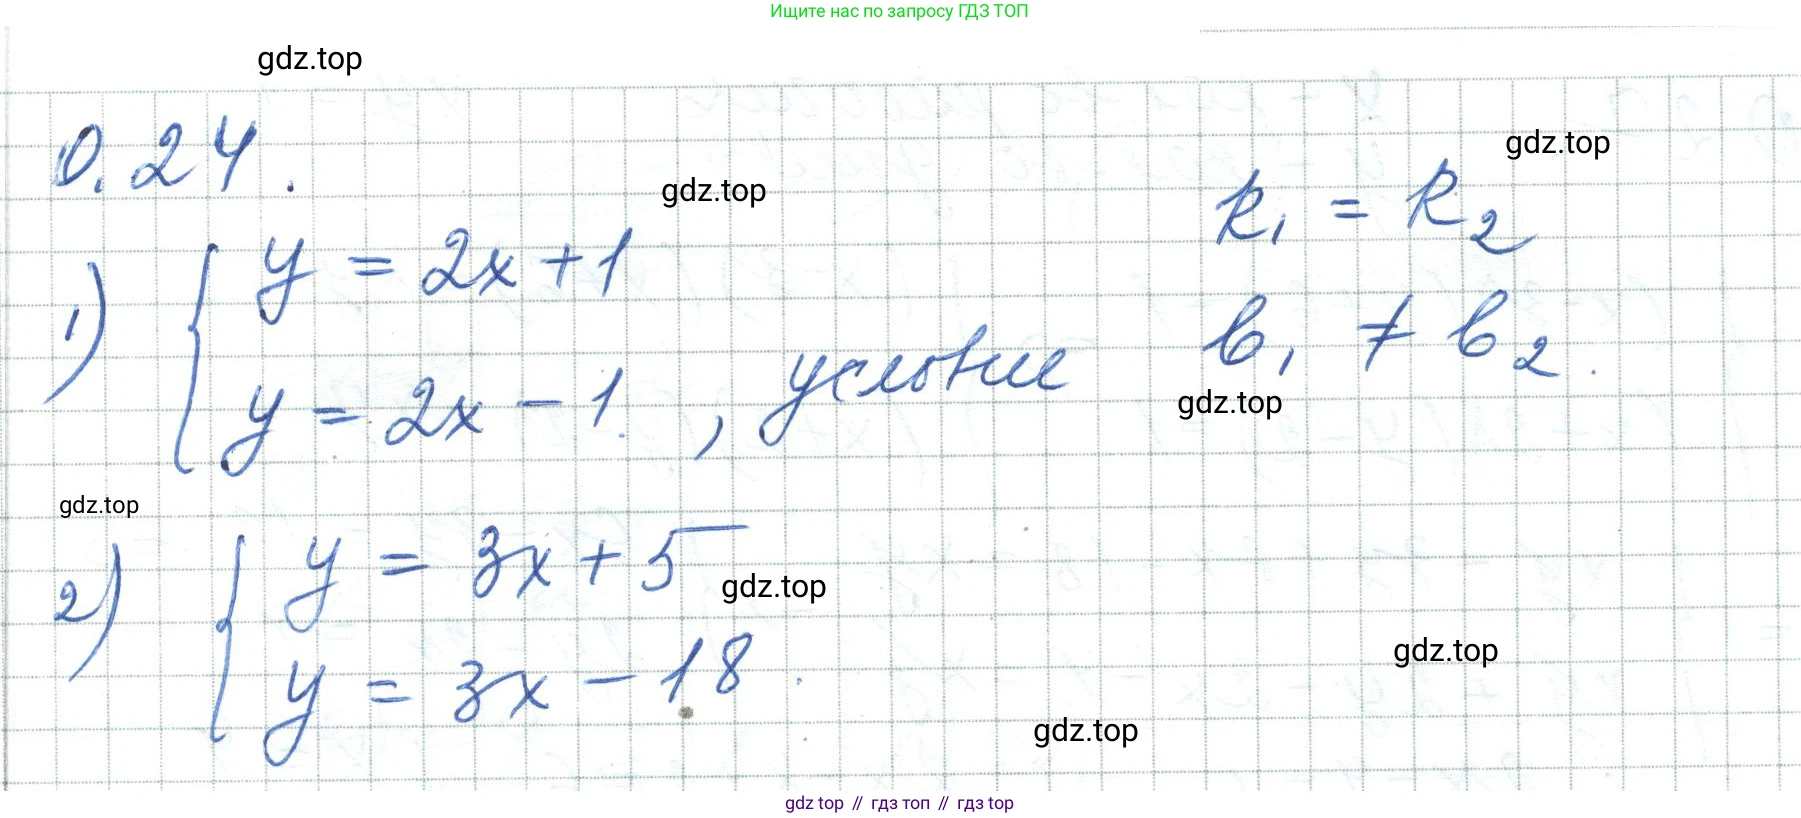 Ищите нас по запросу ГДЗ ТОП
gdz.top
0.24.
gdz.top
gdz.top
k₁ = k₂
1) { y = 2x + 1
y = 2x - 1 , условие b₁ ≠ b₂.
gdz.top
gdz.top
2) { y = 3x + 5
gdz.top
y = 3x - 18.
gdz.top
gdz.top
gdz top // гдз топ // гдз top